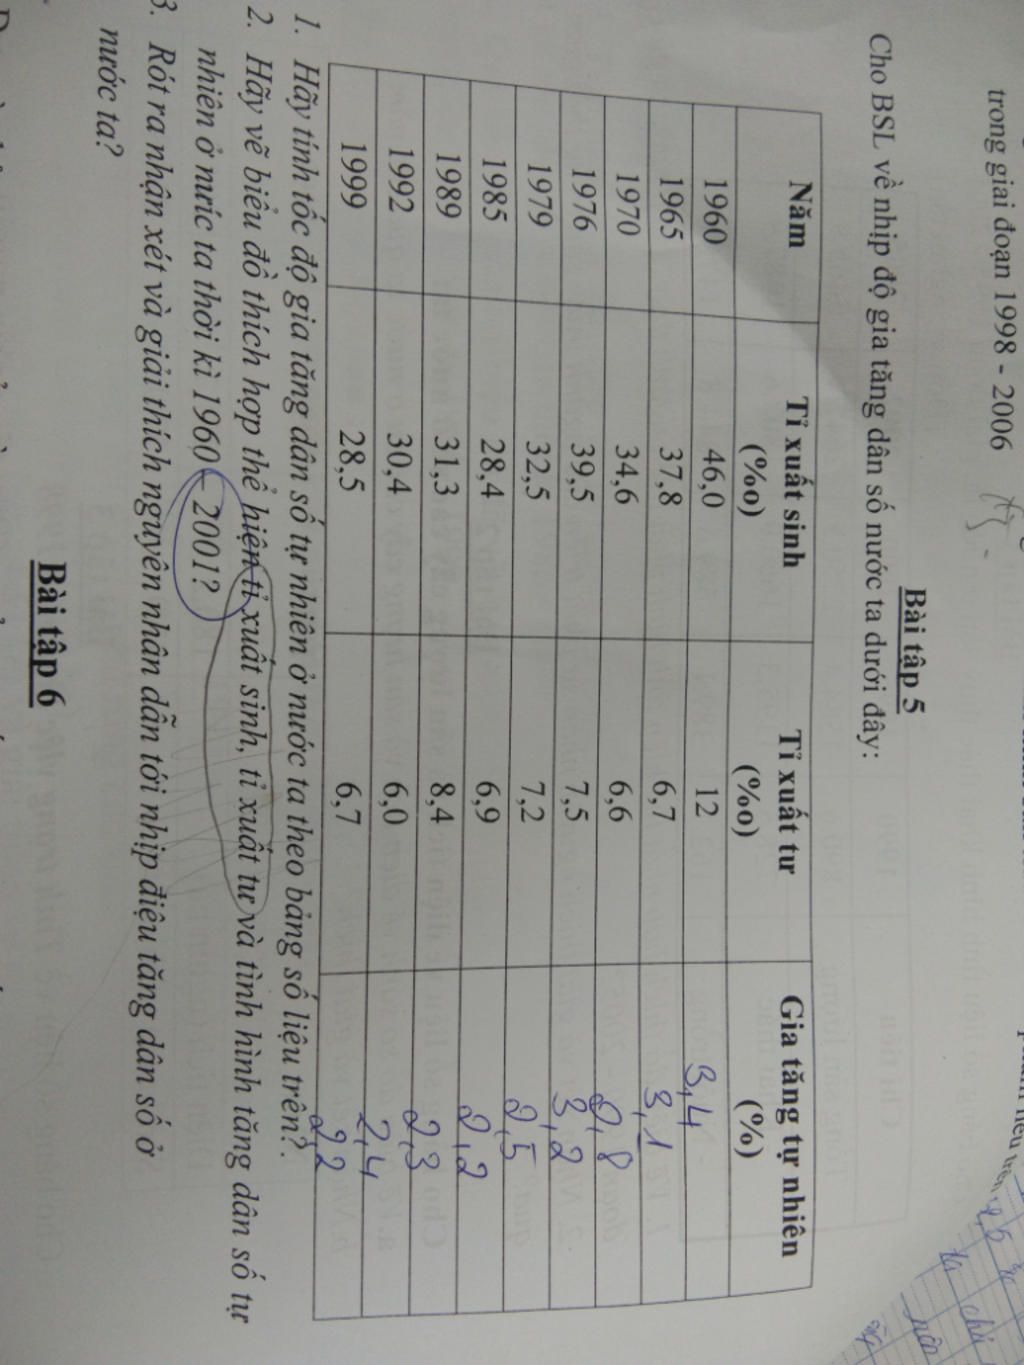 trong giai đoạn 1998 - 2006
Bài tập 5
Cho BSL về nhịp độ gia tăng dân số nước ta dưới đây:
Năm Tỉ xuất sinh (%o) Tỉ xuất tư (%o) Gia tăng tự nhiên (%)
1960 46,0 12 3,4
1965 37,8 6,7 3,1
1970 34,6 6,6 2,8
1976 39,5 7,5 3,2
1979 32,5 7,2 2,5
1985 28,4 6,9 2,2
1989 31,3 8,4 2,3
1992 30,4 6,0 2,4
1999 28,5 6,7 2,2
1. Hãy tính tốc độ gia tăng dân số tự nhiên ở nước ta theo bảng số liệu trên?.
2. Hãy vẽ biểu đồ thích hợp thể hiện tỉ xuất sinh, tỉ xuất tư và tình hình tăng dân số tự
nhiên ở nưíc ta thời kì 1960 – 2001?
3. Rót ra nhận xét và giải thích nguyên nhân dẫn tới nhịp điệu tăng dân số ở
nước ta?
Bài tập 6